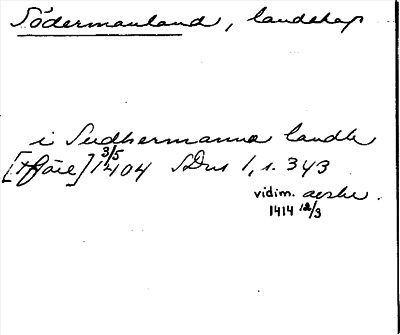 Södermanland, landskap
i Sudhermanna landh
3/5
[Tfjäle] 1404 SDns 1, s. 343
vidim. avskr.
1414 12/3